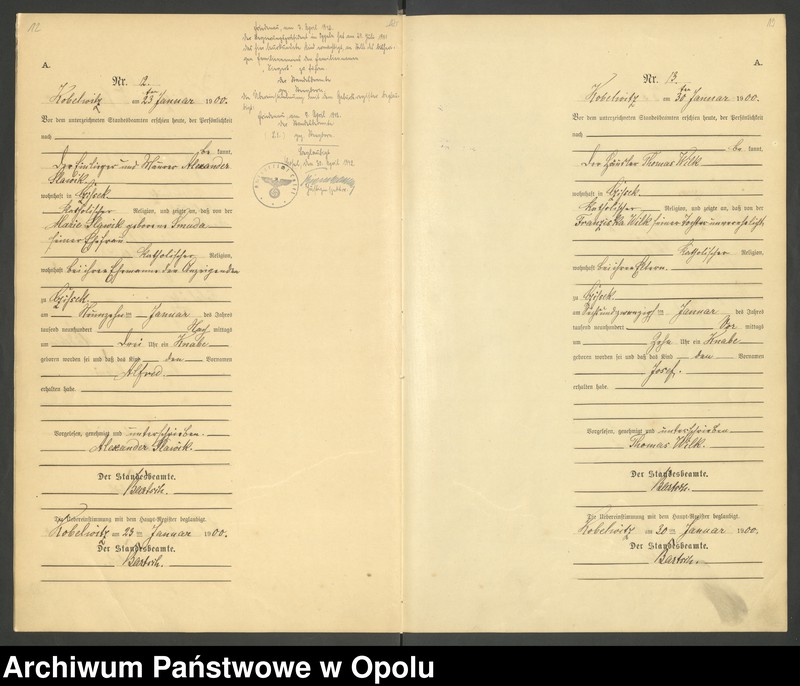 12
A.
Nr. 12.
Kobelwitz am 23ten Januar 1900.
Vor dem unterzeichneten Standesbeamten erschien heute, der Persönlichkeit
nach
be kannt,
der Einlieger und Maurer Alexander
Slawik.
wohnhaft in Gzissek.
Katholischer Religion, und zeigte an, daß von der
Marie Slawik geborene Smuda
seiner Ehefrau
Katholischer Religion,
wohnhaft bei ihrem Ehemanne der Anzeigenden
zu Gzissek.
am Neunzehnten Januar des Jahres
tausend neunhundert Nach mittags
um Drei Uhr ein Knabe
geboren worden sei und daß das Kind den Vornamen
Alfred
erhalten habe.
Vorgelesen, genehmigt und unterschrieben.
Alexander Slawik.
Der Standesbeamte.
Bartsch.
Die Uebereinstimmung mit dem Haupt-Register beglaubigt.
Kobelwitz am 23ten Januar 1900.
Der Standesbeamte.
Bartsch.
am 3. April 1942.
Der Regierungspräsident in Oppeln hat am
Familiennamen den Familiennamen
zu führen.
Der Standesbeamte
am 3. April 1942.
Der Standesbeamte
Beglaubigt
Cosel, den 20. April 1942
13
A.
Nr. 13.
Kobelwitz am 30ten Januar 1900.
Vor dem unterzeichneten Standesbeamten erschien heute, der Persönlichkeit
nach
be kannt,
der Häusler Thomas Wilk
wohnhaft in Gzissek.
Katholischer Religion, und zeigte an, daß von der
Franziska Wilk seiner Tochter unverehelicht
Katholischer Religion,
wohnhaft bei ihren Eltern.
zu Gzissek.
am Sechsundzwanzigsten Januar des Jahres
tausend neunhundert Vor mittags
um Zehn Uhr ein Knabe
geboren worden sei und daß das Kind den Vornamen
Josef.
erhalten habe.
Vorgelesen, genehmigt und unterschrieben
Thomas Wilk.
Der Standesbeamte.
Bartsch.
Die Uebereinstimmung mit dem Haupt-Register beglaubigt.
Kobelwitz am 30ten Januar 1900.
Der Standesbeamte.
Bartsch.
Archiwum Państwowe w Opolu